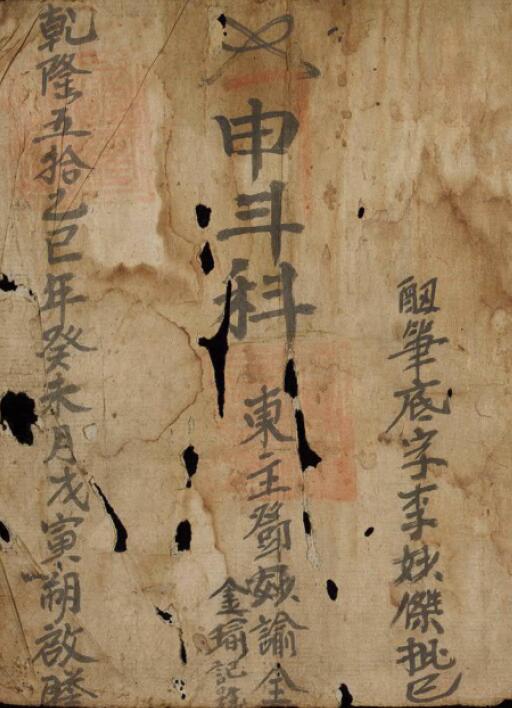 筆底字李妙傑批
申斗科
東主鄧妙諭全
金瑜記號
乾隆五拾乙巳年癸未月戊寅朔啟謄